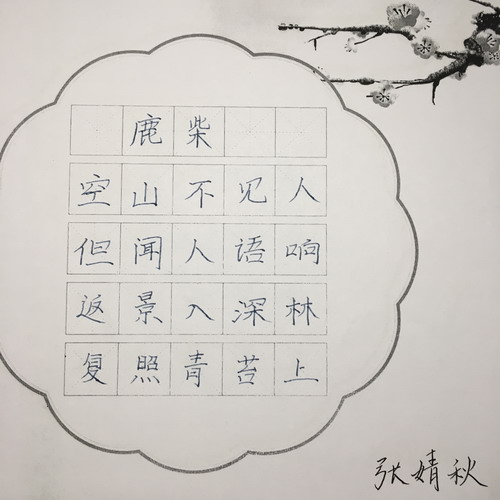 鹿柴
空山不见人
但闻人语响
返景入深林
复照青苔上
张婧秋